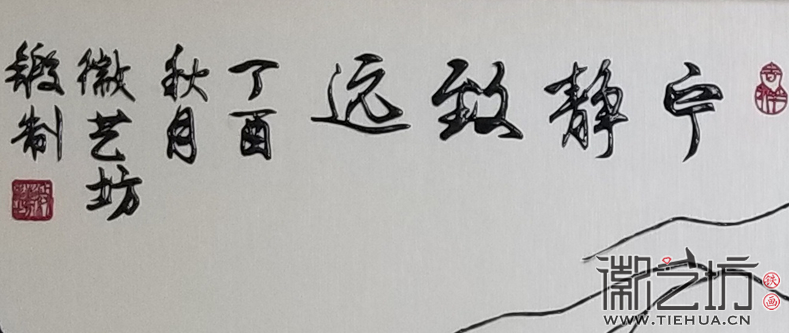 吉祥
宁静致远
丁酉
秋月
徽艺坊
锻制
徽艺坊
铁画
WWW.TIEHUA.CN